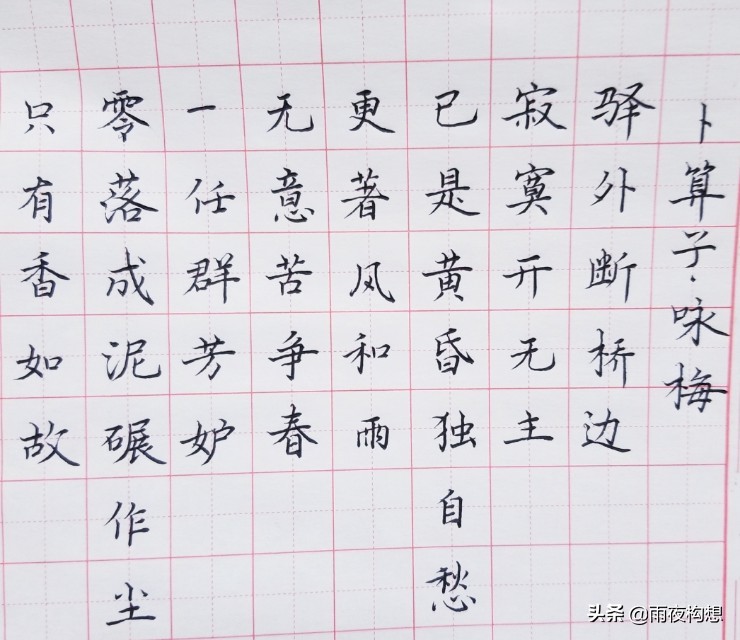 卜算子·咏梅
驿外断桥边
寂寞开无主
已是黄昏独自愁
更著风和雨
无意苦争春
一任群芳妒
零落成泥碾作尘
只有香如故
头条 @雨夜构想